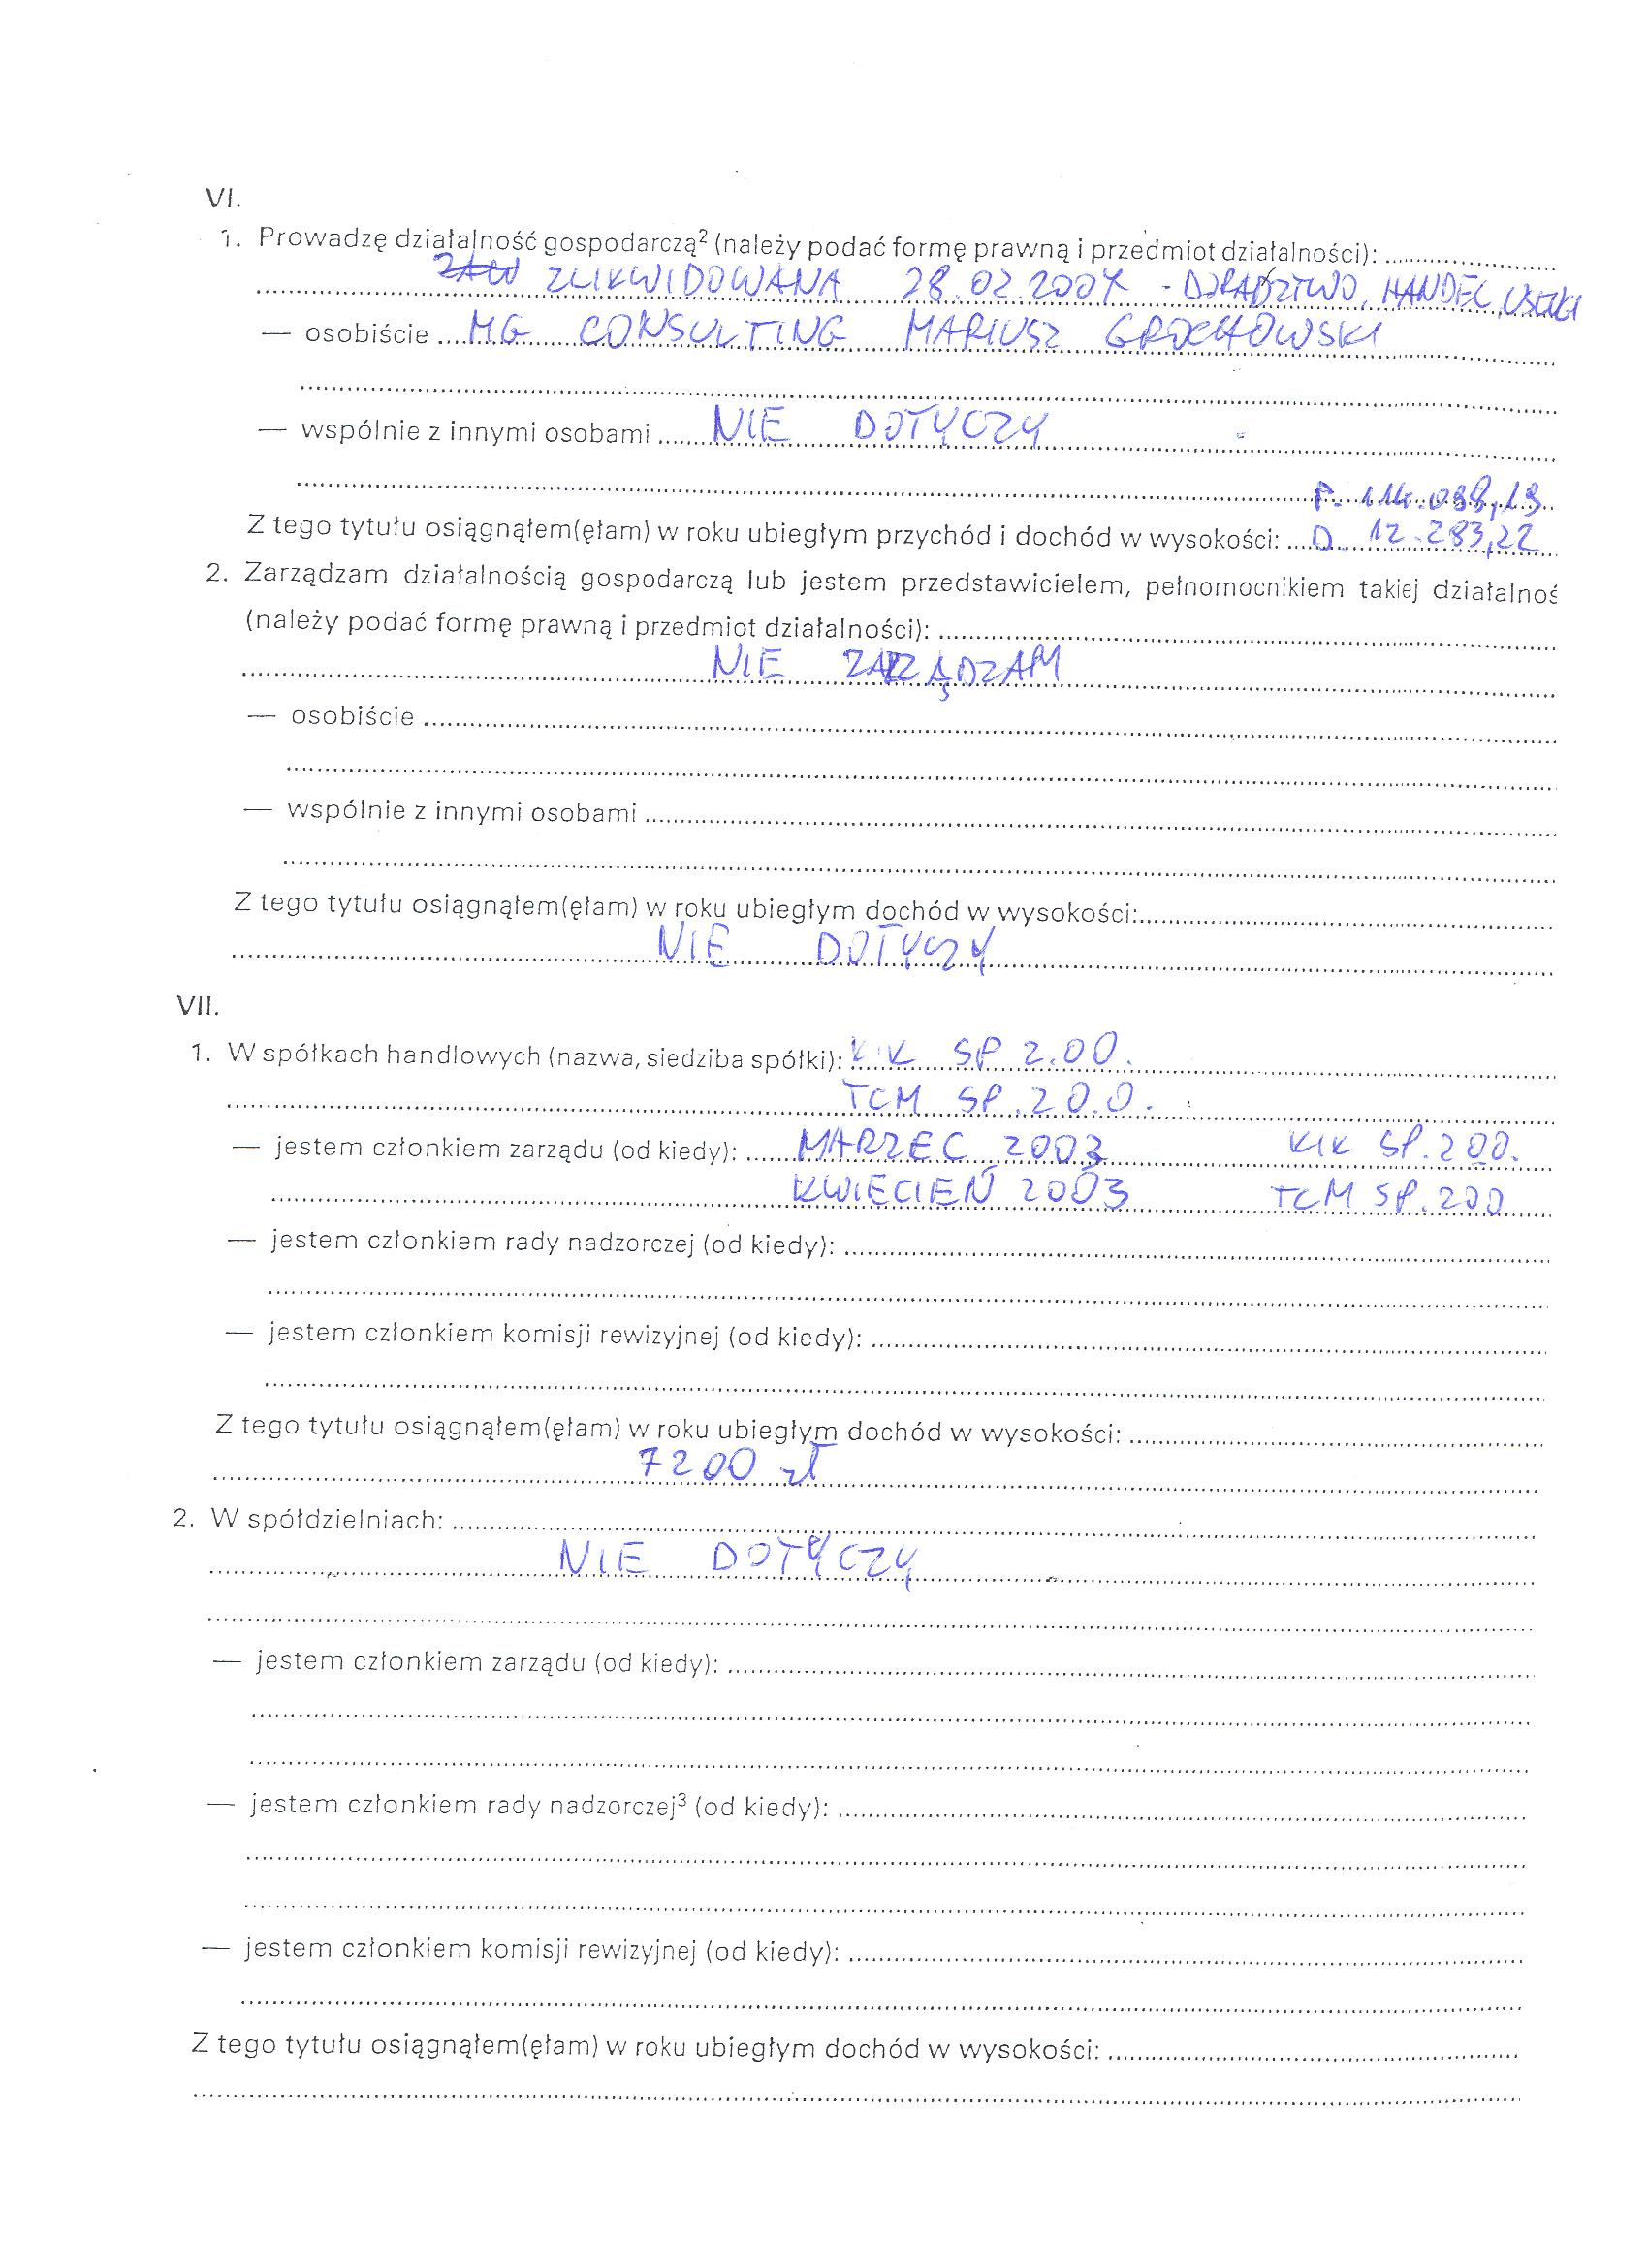 VI.
1. Prowadzę działalność gospodarczą² (należy podać formę prawną i przedmiot działalności): ....................
ZLIKWIDOWANA 28.02.2007 - DORADZTWO, HANDEL, USŁUGI
— osobiście ... MG CONSULTING MARIUSZ GROCHOWSKI
— wspólnie z innymi osobami ...... NIE DOTYCZY
P. 114.088,13
Z tego tytułu osiągnąłem(ęłam) w roku ubiegłym przychód i dochód w wysokości: .... D. 12.283,22
2. Zarządzam działalnością gospodarczą lub jestem przedstawicielem, pełnomocnikiem takiej działalnoś
(należy podać formę prawną i przedmiot działalności): ....................
NIE ZARZĄDZAM
— osobiście ....................
— wspólnie z innymi osobami ....................
Z tego tytułu osiągnąłem(ęłam) w roku ubiegłym dochód w wysokości:....................
NIE DOTYCZY
VII.
1. W spółkach handlowych (nazwa, siedziba spółki): KIK SP Z.OO.
TCM SP.ZO.O.
— jestem członkiem zarządu (od kiedy): ...... MARZEC 2003 KIK SP.ZOO.
KWIECIEŃ 2003 TCM SP.ZOO
— jestem członkiem rady nadzorczej (od kiedy): ....................
— jestem członkiem komisji rewizyjnej (od kiedy): ....................
Z tego tytułu osiągnąłem(ęłam) w roku ubiegłym dochód w wysokości: ....................
7200 zł
2. W spółdzielniach: ....................
NIE DOTYCZY
— jestem członkiem zarządu (od kiedy): ....................
— jestem członkiem rady nadzorczej³ (od kiedy): ....................
— jestem członkiem komisji rewizyjnej (od kiedy): ....................
Z tego tytułu osiągnąłem(ęłam) w roku ubiegłym dochód w wysokości: ....................